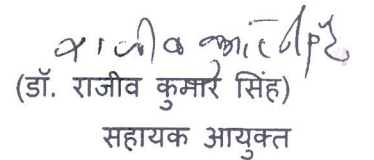 (डॉ. राजीव कुमार सिंह)
सहायक आयुक्त